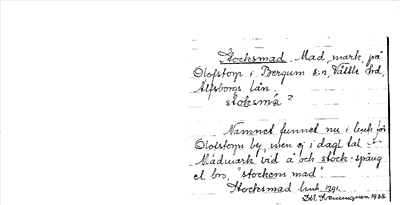 Stocksmad. Mad, mark, på
Olofstorp i Bergum s:n, Vättle hd,
Älfsborgs län.
stoksmá?
Namnet funnet nu i bruk för
Olofstorps by, men ej i dagl. tal
Mådmark vid å och stock-spång
el. bro, "stockens mad".
Stocksmad bruk 1791.
1938